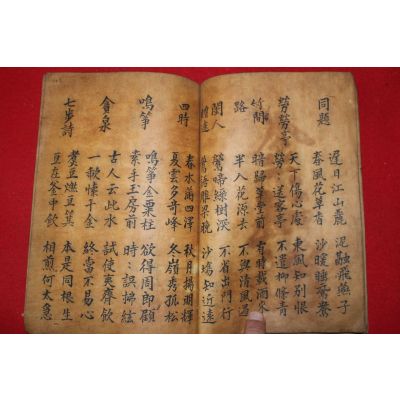 同題 遲日江山麗 泥融飛燕子
春風花草香 沙暖睡鴛鴦
勞勞亭 天下傷心處 東風知別恨
勞〻送客亭 不遣柳條青
竹間 暗歸草堂 有時載酒來
路 半入花源去 不與清風遇
閨人 鶯啼綠樹深 不省出門行
贈遠 鶯語雕梁晚 沙塲知近遠
四時 春水滿四澤 秋月揚明輝
夏雲多奇峰 冬嶺秀孤松
鳴箏 鳴箏金粟柱 欲得周郎顧
素手玉房前 時〻誤拂絃
貪泉 古人云此水 試使夷齊飲
一歃懷千金 終當不易心
七步詩 煮豆燃豆萁 本是同根生
豆在釜中飲 相煎何太急